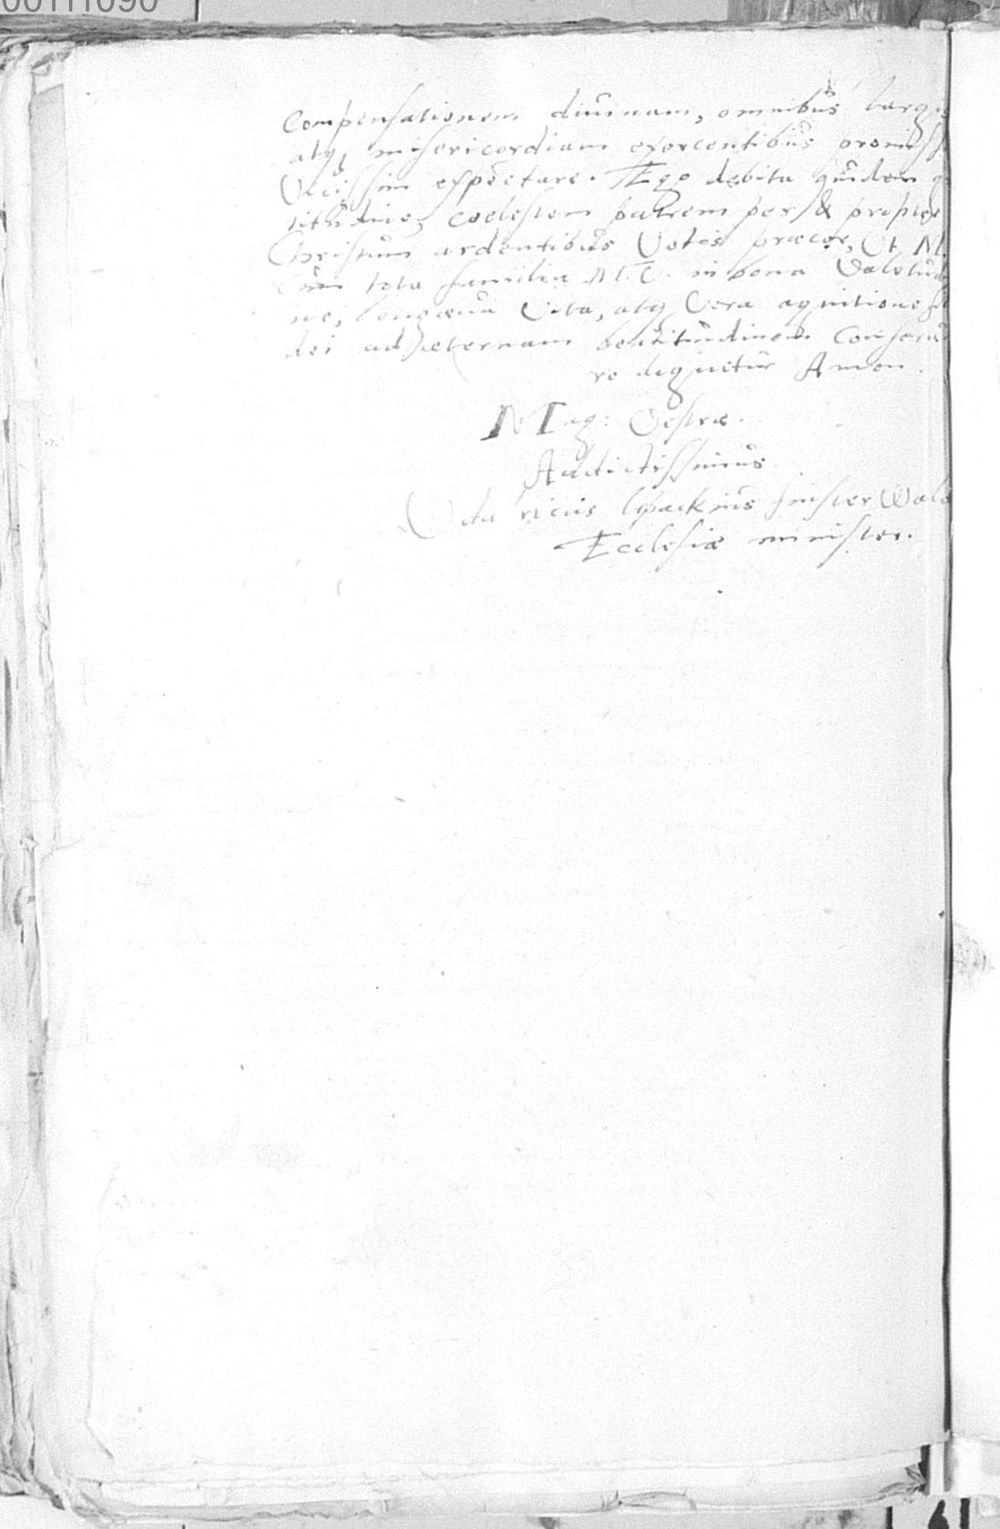 00111090
compensationem diuinam, omnibus larg
atq; misericordiam exercentibus promiss
Vicissim expectare. Ego debita quidem
titudine, coelestem patrem per & propter
Christum ardentibus Votis præcor, Ut M.
cum tota familia M. V. in bona Valetudi
ne, longæua Vita, atq; Vera agnitione fi
dei ad æternam beatitudinem Conserua
re dignetur Amen.
Mag: Vestræ.
Addictissimus
minister
Ecclesiæ minister.